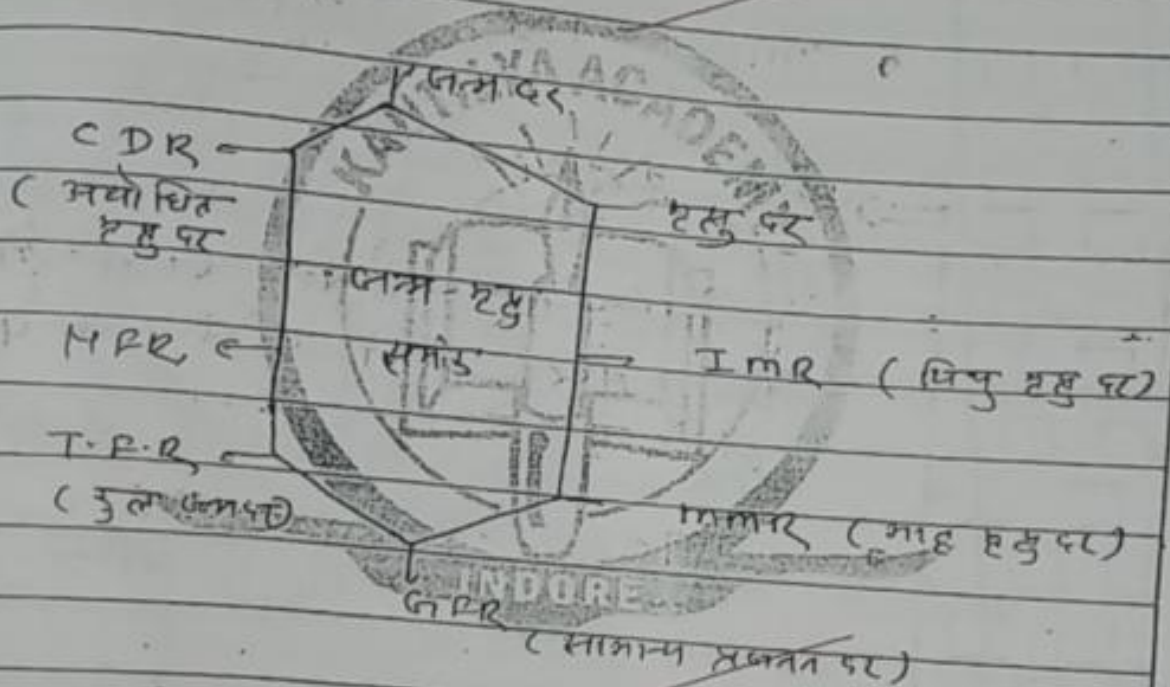 जन्म दर
CDR
(अशोधित
मृत्यु दर
मृत्यु दर
जन्म-मृत्यु
समंक
MFR
IMR (शिशु मृत्यु दर)
T.F.R
(कुल जन्म दर)
MMR (मातृ मृत्यु दर)
GFR
(सामान्य प्रजनन दर)
INDORE